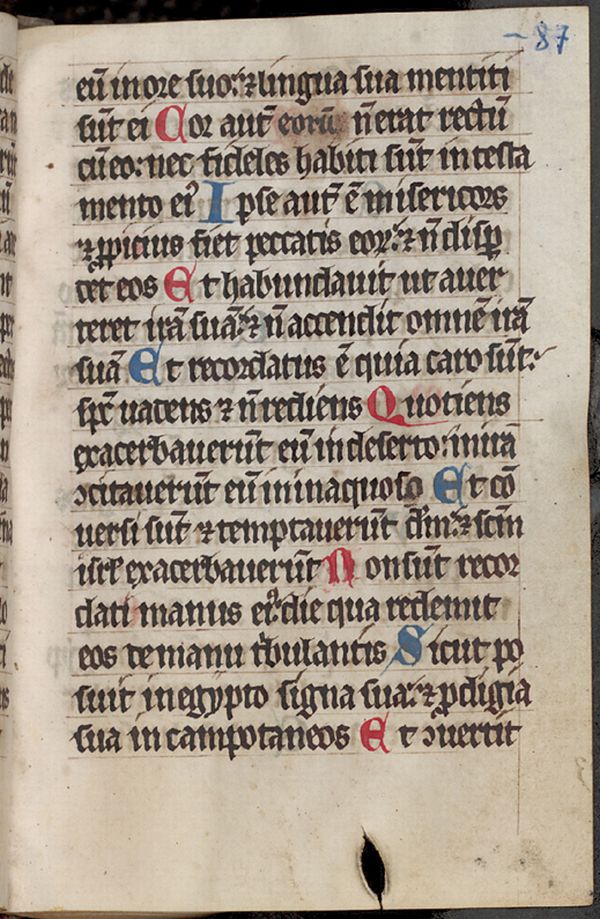 87
eū in ore suo: ⁊ lingua sua mentiti
sūt ei Cor aut̄ eorū n̄ erat rectū
cū eo: nec fideles habiti sūt in testa
mento eiꝰ Ipse aut̄ ē misericors
⁊ ꝓpicius fiet peccatis eoꝝ: ⁊ n̄ disꝑ
det eos Et habundauit ut auer
teret irā suā: ⁊ n̄ accendit omnē irā
suā Et recordatus ē quia caro sūt:
sp̄c uadens ⁊ n̄ rediens Quotiens
exacerbauerūt eū in deserto: in irā
ↄcitauerūt eū in inaquoso Et cō
uersi sūt ⁊ temptauerūt dm̄: ⁊ scm̄
isrl̄ exacerbauerūt Non sūt recor
dati manus eiꝰ: die qua redemit
eos de manu tͥbulantis Sicut po
suit in egypto signa sua: ⁊ ꝓdigia
sua in campo taneos Et ↄuertit